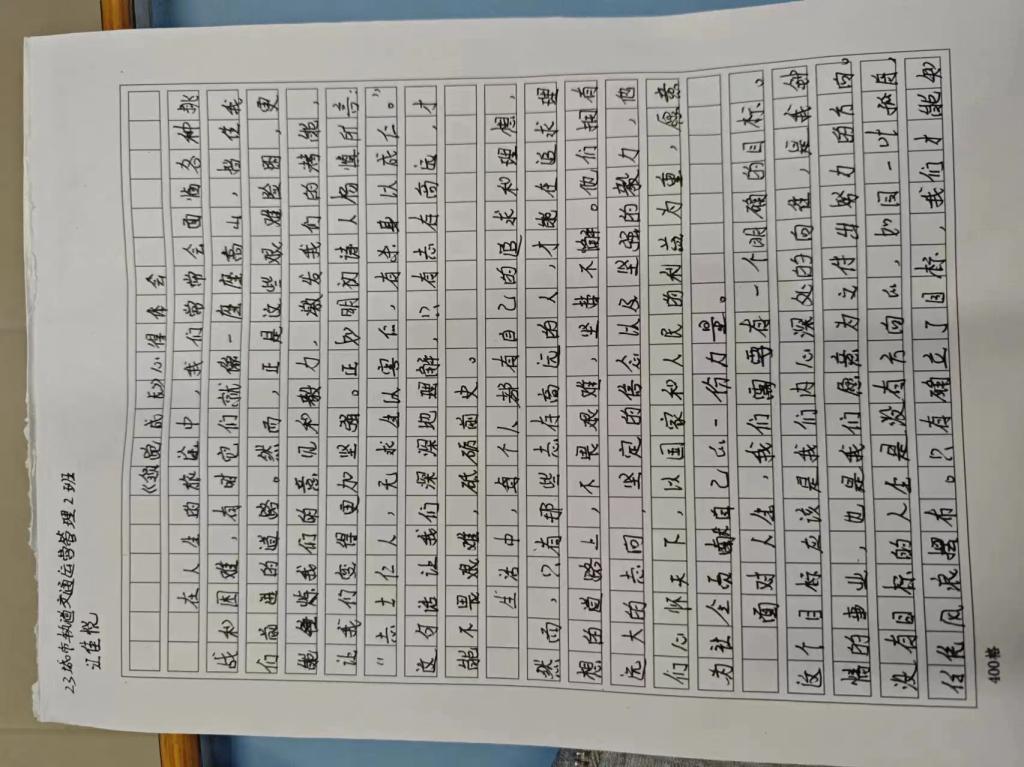 23城市轨道交通运营管理2班
江佳悦
《兢兢成长》心得体会
在人生的旅途中，我们常常会面临各种挑
战和困难，有时它们就像一座座高山，挡住我
们前进的道路。然而，正是这些艰难险阻，更
能锤炼我们的意见和毅力，激发我们的潜能，
让我们变得更加坚强。正如明初诗人杨慎所言：
“志士仁人，无求生以害仁，有杀身以成仁。”
这句话让我们深深地理解，只有志存高远，才
能不畏艰难，砥砺前史。
生活中，每个人都有自己的追求和理想，
然而，只有那些志存高远的人，才能在追求理
想的道路上，不畏艰难，坚哲不懈。他们拥有
远大的志向，坚定的信念以及坚强的毅力，他
们心怀天下，以国家和人民的利益为重，愿意
为社会贡献自己以一份力量。
面对人生，我们需要有一个明确的目标。
这个目标应该是我们内心深处的向往，是我钟
情的事业，也是我们愿意为之付出努力的方向。
没有目标的人生是没有方向的，如同一叶扁舟，
任凭风浪摆布。只有确立了目标，我们才能知
400格